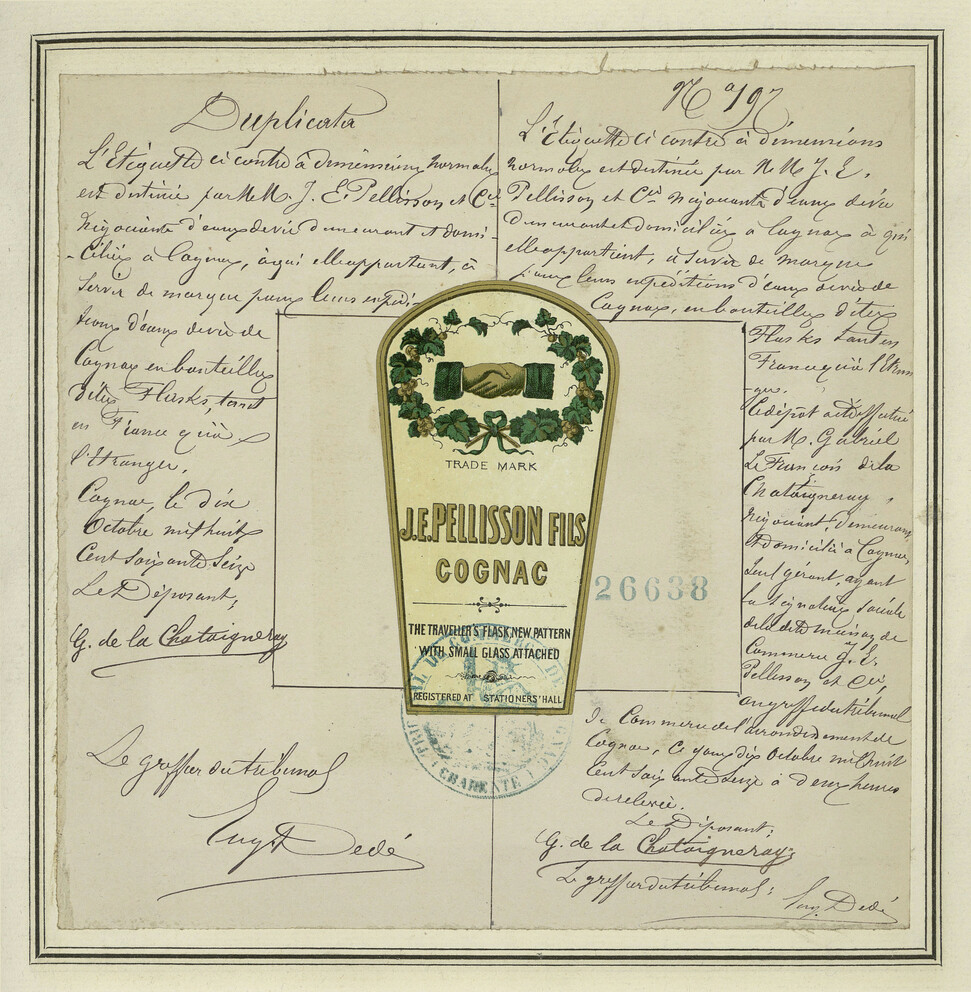 Duplicata
L'Etiquette ci contre à dimensions normales
est destinée par M.M. J. E. Pellisson et Cie
Négociants d'eaux de vie demeurant et domi-
-ciliés à Cognac, à qui elle appartient, à
servir de marque pour leurs expédi-
tions d'eaux de vie de
Cognac en bouteilles
dites Flasks, tant
en France qu'à
l'étranger.
Cognac, le dix
Octobre mil huit
Cent soixante Seize
Le Déposant,
G. de la Chataigneray
Le greffier du tribunal
Eug. Dedé
No 197
L'Etiquette ci contre à dimensions
normales est destinée par M M J. E.
Pellisson et Cie négociants d'eaux de vie
demeurant et domiciliés à Cognac à qui
elle appartient, à servir de marque
pour leurs expéditions d'eaux de vie de
Cognac, en bouteilles dites
Flasks tant en
France qu'à l'Etran
-ger.
Le dépôt a été effectué
par M. Gabriel
Le François de la
Chataigneray,
négociant, demeurant
et domicilié à Cognac,
seul gérant, ayant
la signature sociale
de la dite maison de
Commerce J. E.
Pellisson et Cie,
au greffe du tribunal
de Commerce de l'arrondissement de
Cognac, ce jour dix Octobre mil huit
Cent soixante Seize à deux heures
de relevée.
Le Déposant,
G. de la Chataigneray
Le greffier du tribunal;
Eug. Dedé
TRADE MARK
J.E. PELLISSON FILS
COGNAC
THE TRAVELLER'S FLASK, NEW PATTERN
WITH SMALL GLASS ATTACHED
REGISTERED AT STATIONERS' HALL
26638
CHARENTE